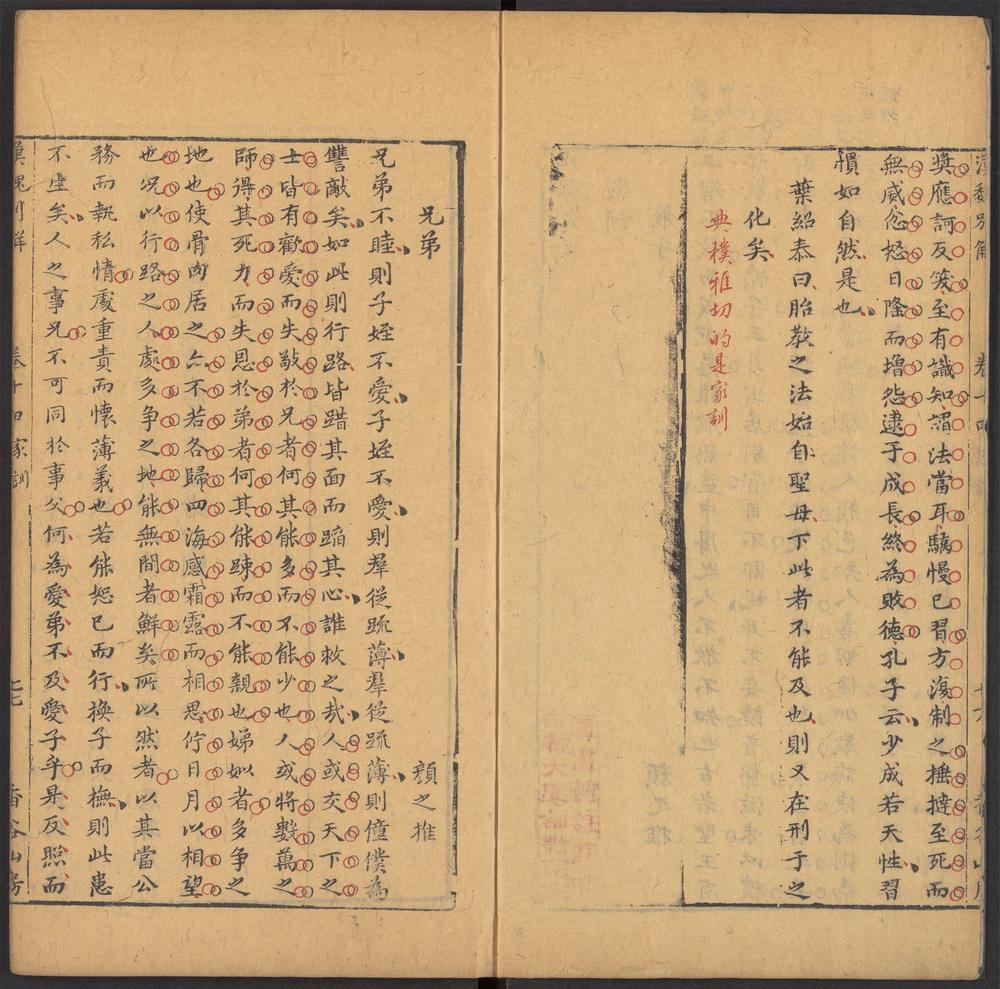 漢魏別解 卷十四 十六 香谷山房
奬應訶反笑至有識知謂法當耳驕慢已習方復制之捶撻至死而
無威忿怒日隆而增怨逮于成長終為敗德孔子云少成若天性習
慣如自然是也
葉紹泰曰胎教之法始自聖母下此者不能及也則又在刑于之
化矣
典樸雅切的是家訓
兄弟 顏之推
兄弟不睦則子姪不愛子姪不愛則羣從疏薄羣從疏薄則僮僕為
讐敵矣如此則行路皆踖其面而蹈其心誰救之哉人或交天下之
士皆有歡愛而失敬於兄者何其能多而不能少也人或將數萬之
師得其死力而失恩於弟者何其能踈而不能親也娣姒者多争之
地也使骨肉居之亦不若各歸四海感霜露而相思佇日月以相望
也况以行路之人處多争之地能無間者鮮矣所以然者以其當公
務而執私情處重責而懷薄義也若能恕已而行換子而撫則此患
不生矣人之事兄不可同於事父何為愛弟不及愛子乎是反照而
漢魏別解 卷十四 家訓 十七 香谷山房